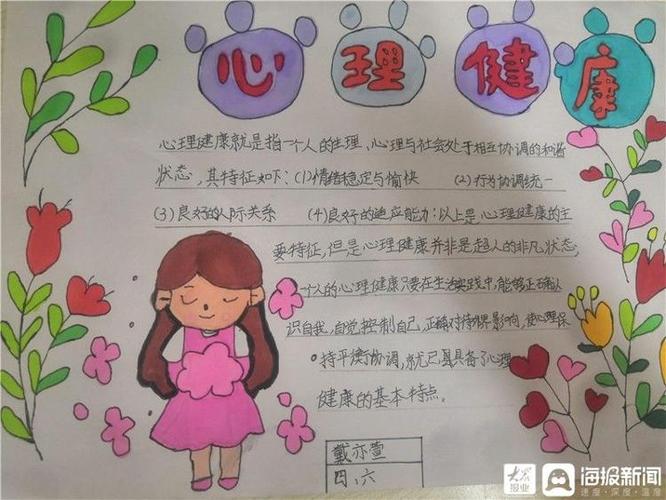 心理健康
心理健康就是指一个人的生理,心理与社会处于相互协调的和谐
状态,其特征如下:(1)情绪稳定与愉快 (2)行为协调统一
(3)良好的人际关系 (4)良好的适应能力:以上是心理健康的主
要特征,但是心理健康并非是超人的非凡状态,
一个人的心理健康只要在生活实践中,能够正确认
识自我,自觉控制自己,正确对待外界影响,使心理保
持平衡协调,就已具备了心理
健康的基本特点。
戴亦萱
四、六
大众报业
海报新闻
速度·深度·温度